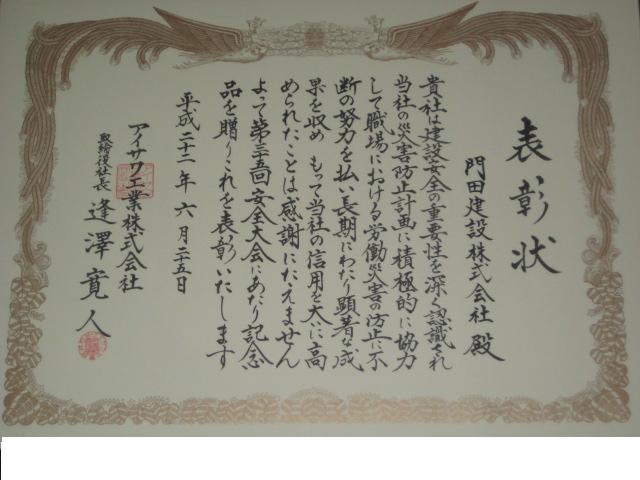 表彰状
門田建設株式会社 殿
貴社は建設安全の重要性を深く認識され
当社の災害防止計画に積極的に協力
して職場における労働災害の防止に不
断の努力を払い長期にわたり顕著な成
果を収め もって当社の信用を大いに高
められたことは感謝にたえません
よって第三五回安全大会にあたり記念
品を贈りこれを表彰いたします
平成二十二年六月二五日
アイサワ工業株式会社
取締役社長 逢澤寛人